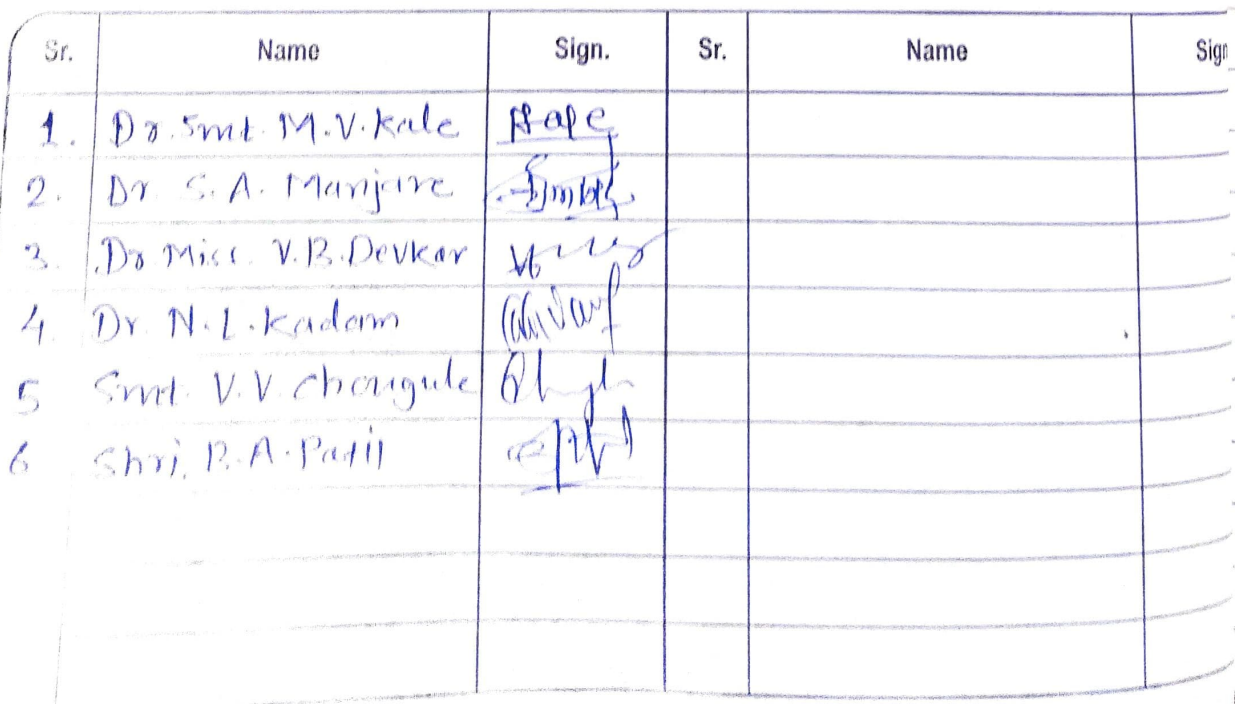 Sr. Name Sign. Sr. Name Sign
1. Dr. Smt. M.V. Kale
2. Dr S.A. Manjare
3. Dr. Miss. V.B. Devkar
4. Dr. N.L. Kadam
5 Smt. V.V. Chougule
6 Shri. B.A. Patil